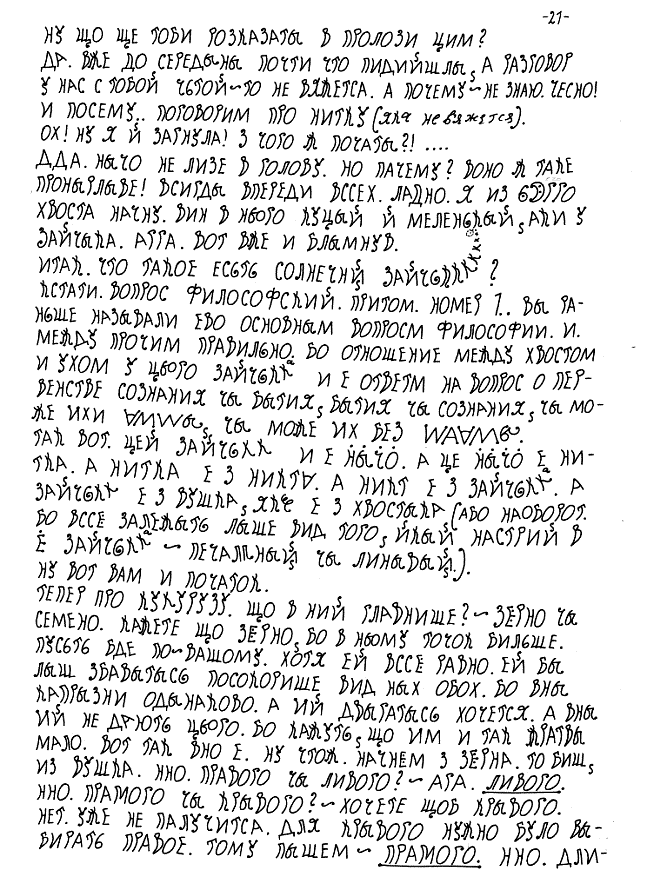 -21-
НУ ЩО ЩЕ ТОБИ РОЗКАЗАТЫ В ПРОЛОЗИ ЦИМ?
ДА. ВЖЕ ДО СЕРЕДЫНЫ ПОЧТИ ЧТО ПИДИЙШЛЫ, А РАЗГОВОР
У НАС С ТОБОЙ ЧЬТОЙ~ТО НЕ ВЯЖЕТСА. А ПОЧЕМУ~НЕ ЗНАЮ. ЧЕСНО!
И ПОСЕМУ.. ПОГОВОРИМ ПРО НИТКУ (яка не вяжется).
ОХ! НУ Я Й ЗАГНУЛА! З ЧОГО Ж ПОЧАТЫ?! ....
ДДА. НЫЧО НЕ ЛИЗЕ В ГОЛОВУ. НО ПАЧЕМУ? ВОНО Ж ТАКЕ
ПРОНЫРЛЫВЕ! ВСИГДЫ ВПЕРЕДИ ВССЕХ. ЛАДНО. Я ИЗ
ХВОСТА НАЧНУ. ВИН В НЬОГО КУЦЫЙ Й МЕЛЕНЬКЫЙ, АКИ У
ЗАЙЧЫКА. АГГА. ВОТ ВЖЕ И БЛЫМНУВ.
ИТАК. ЧТО ТАКОЕ ЕСЬТЬ СОЛНЕЧНЙ ?
КСТАТИ. ВОПРОС ФИЛОСОФСКИЙ. ПРИТОМ. НОМЕР 1.. ВЫ РА-
НЬШЕ НАЗЫВАЛИ ЕВО ОСНОВНЫМ ВОПРОСМ ФИЛОСОФИИ. И.
МЕЖДУ ПРОЧИМ ПРАВИЛЬНО. БО ОТНОШЕНИЕ МЕЖДУ ХВОСТОМ
И УХОМ У ЦЬОГО ЗАЙЧЬКА И Е ОТВЕТМ НА ВОПРОС О ПЕР-
ВЕНСТВЕ СОЗНАНИЯ ЧЫ БЫТИЯ, БЫТИЯ ЧЫ СОЗНАНИЯ, ЧЫ МО-
ЖЕ ИХИ , ЧЫ МОЖЕ ИХ БЕЗ .
ТАК ВОТ. ЦЕЙ И Е НЫЧО. А ЦЕ НЫЧО Е НИ-
ТКА. А НИТКА Е З НИКТА. А НИКТ Е З ЗАЙЧЬКА. А
ЗАЙЧЬКА Е З ВУШКА, ЯКЕ Е З ХВОСТЫКА (АБО НАОБОРОТ.
БО ВССЕ ЗАЛЕЖЫТЬ ЛЫШЕ ВИД ТОГО, ЙКЫЙ НАСТРИЙ В
Ё ЗАЙЧЬКА ~ ПЕЧАЛЬНЫЙ ЧЫ ЛИНЫВЫЙ.).
НУ ВОТ ВАМ И ПОЧАТОК.
ТЕПЕР ПРО КУКУРУЗУ. ЩО В НИЙ ГЛАВНИШЕ? ~ ЗЕРНО ЧЫ
СЕМЕНО. КАЖЕТЕ ЩО ЗЁРНО, БО В НЬОМУ ТОЧОК БИЛЬШЕ.
ПУСЬТЬ БДЕ ПО~ВАШОМУ. ХОТЯ ЕЙ ВССЁ РАВНО. ЕЙ БЫ
ЛЫШ ЗБАВЫТЫСЬ ПОСКОРИШЕ ВИД НЫХ ОБОХ. БО ВНЫ
КАПРЫЗНИ ОДЫНАКОВО. А ИЙ ДВЫГАТЫСЬ ХОЧЕТСЯ. А ВНЫ
ИЙ НЕ ДАЮТЬ ЦЬОГО. БО КАЖУТЬ, ЩО ИМ И ТАК ЖРАТВЫ
МАЛО. ВОТ ТАК ВНО Е. НУ ЧТОЖ. НАЧНЕМ З ЗЕРНА. ТО БИШ,
ИЗ ВУШКА. ННО. ПРАВОГО ЧЫ ЛИВОГО? ~ АГА. ЛИВОГО.
ННО. ПРАМОГО ЧЫ КРЫВОГО? ~ ХОЧЕТЕ ЩОБ КРЫВОГО.
НЕТ. УЖЕ НЕ ПАЛУЧИТСА. ДЛЯ КРЫВОГО НУЖНО БУЛО ВЫ-
БИРАТЬ ПРАВОЕ. ТОМУ ПЫШЕМ ~ ПРАМОГО. ННО. ДЛИ-